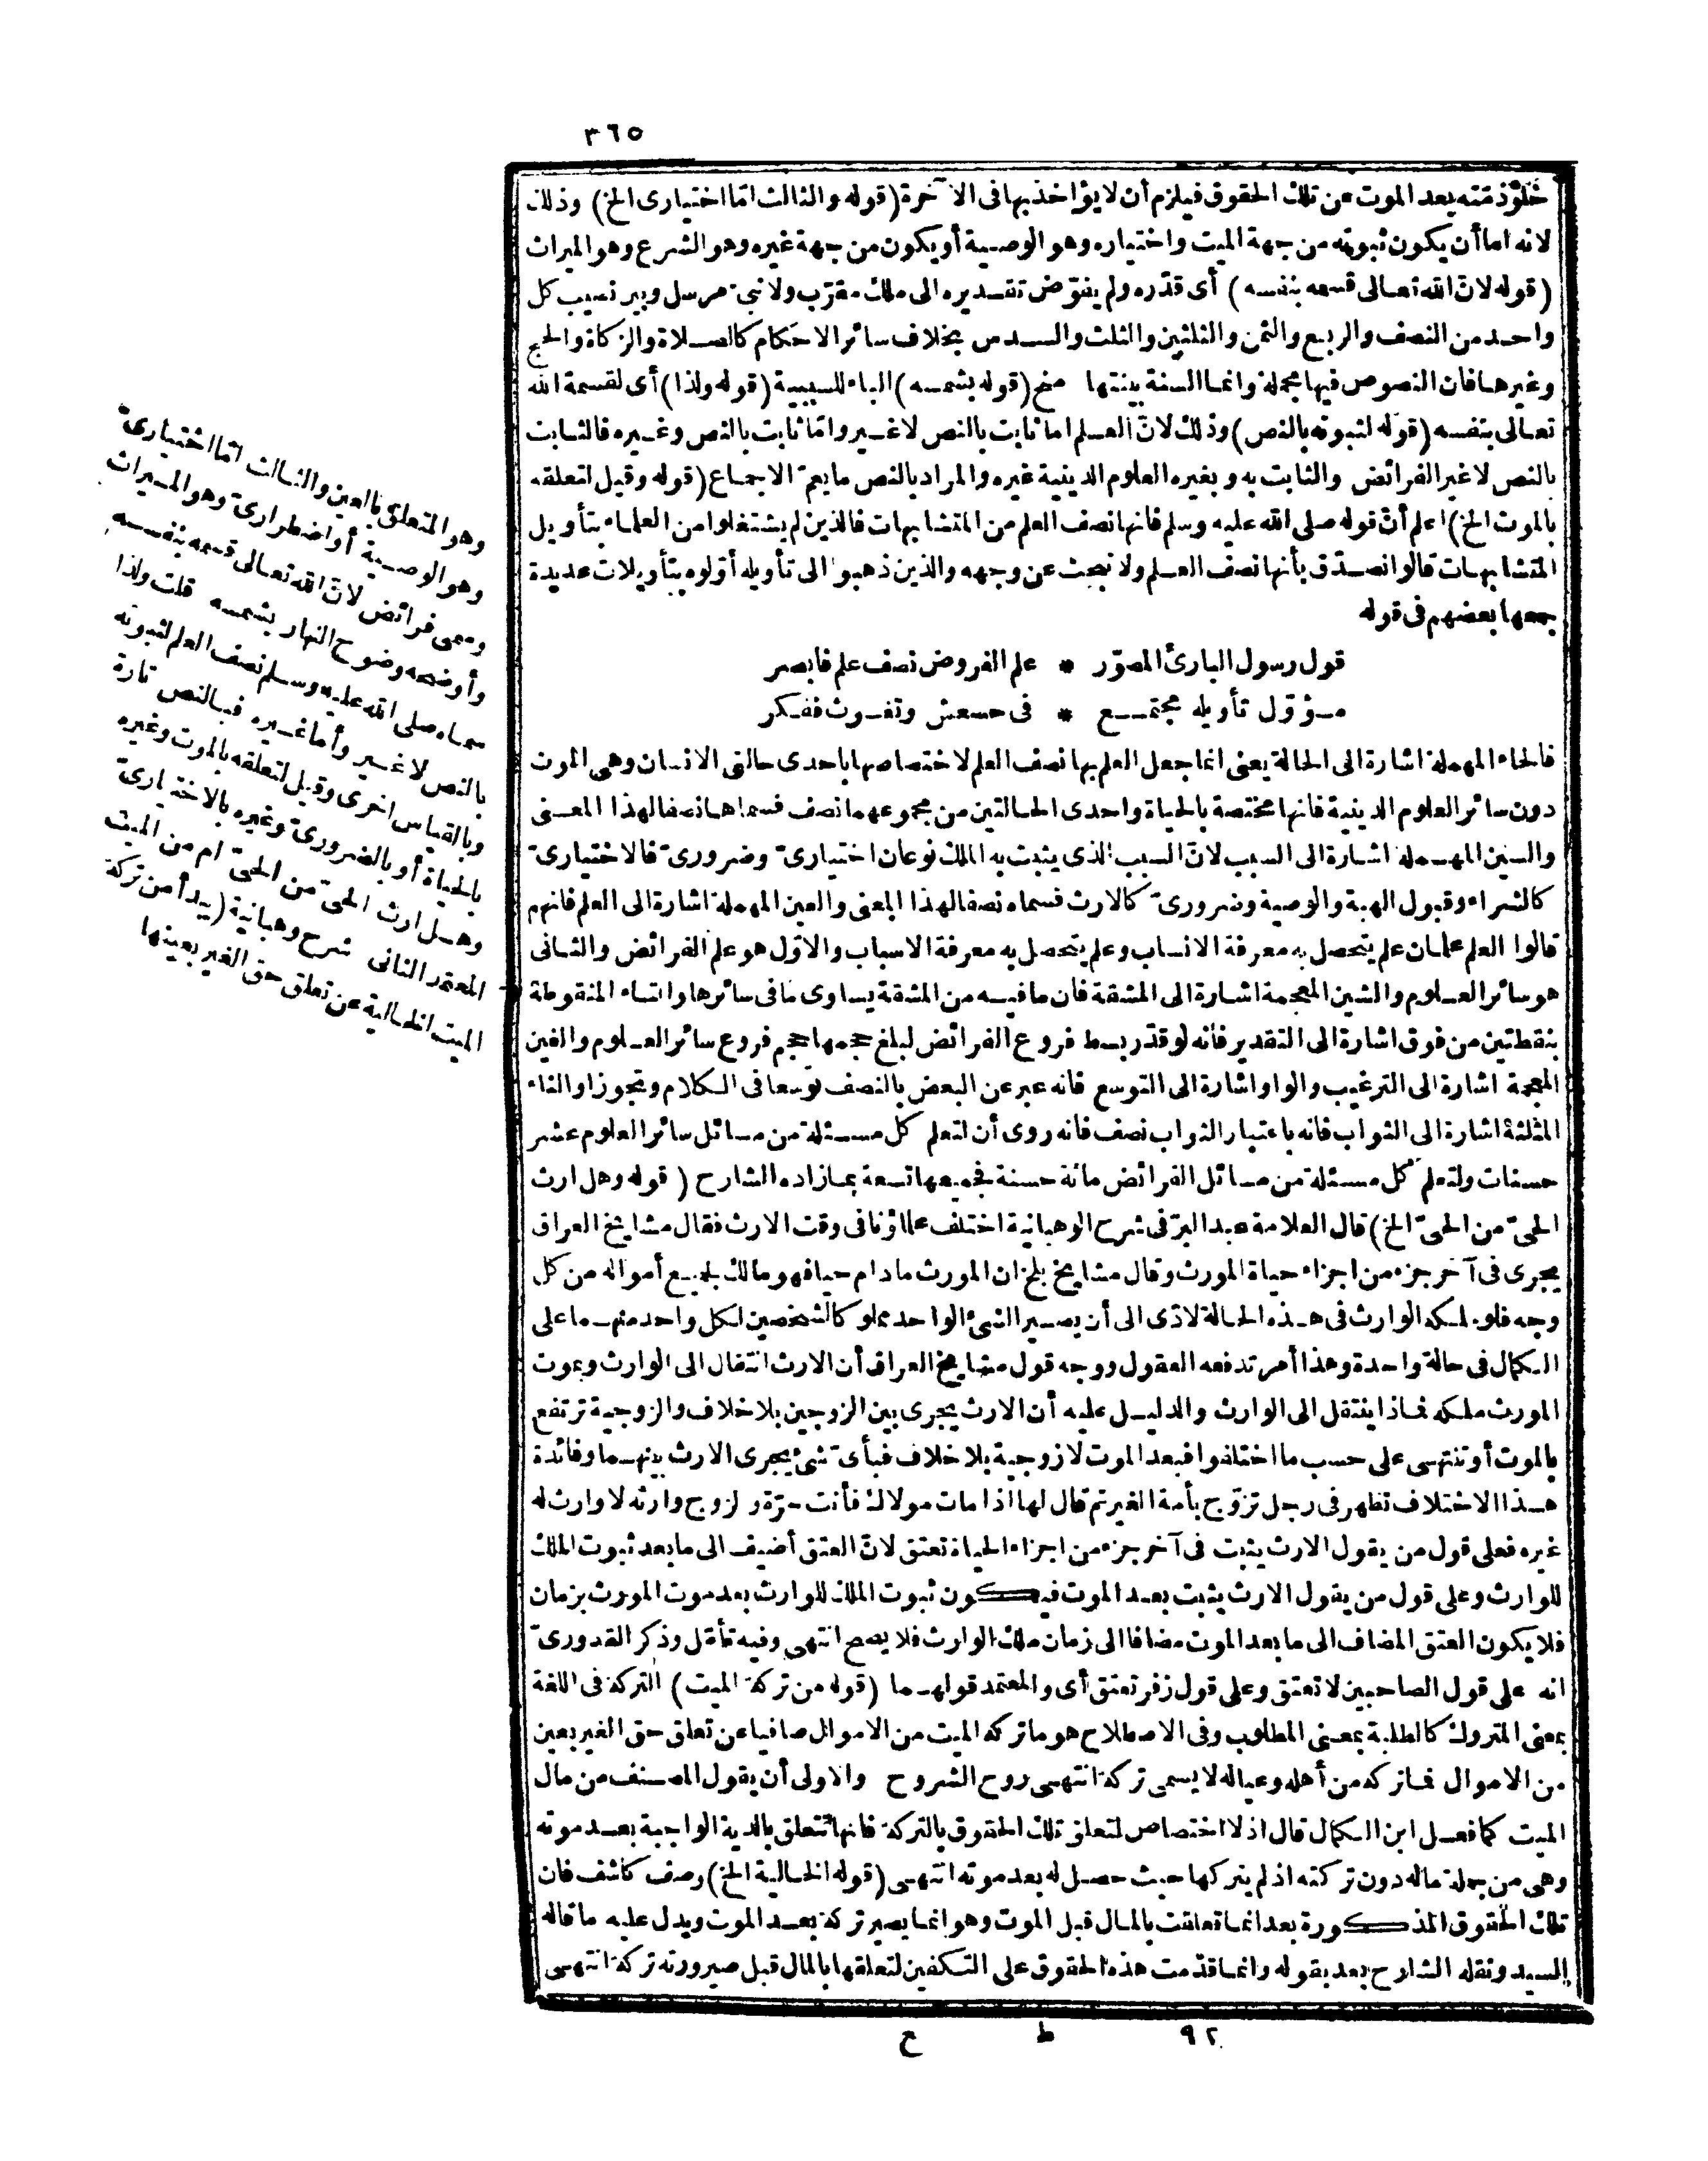 ٣٦٥
خلوّ ذمّته بعد الموت عن تلك الحقوق فيلزم أن لا يؤاخذ بها فى الآخرة (قوله والثالث امّا اختيارى الخ) وذلك
لانه اما أن يكون ثبوته من جهة الميت واختياره وهو الوصية أو يكون من جهة غيره وهو الشرع وهو الميراث
(قوله لانّ الله تعالى قسمه بنفسه) أى قدّره ولم يفوّض تقديره الى ملك مقرّب ولا نبىّ مرسل وبين نصيب كل
واحد من النصف والربع والثمن والثلثين والثلث والسدس بخلاف سائر الاحكام كالصلاة والزكاة والحج
وغيرها فان النصوص فيها مجملة وانما السنة بينتها منح (قوله بشمسه) الباء للسببية (قوله ولذا) أى لقسمة الله
تعالى بنفسه (قوله لثبوته بالنص) وذلك لانّ العلم اما ثابت بالنص لا غير وامّا ثابت بالنص وغيره فالثابت
بالنص لا غير الفرائض والثابت به وبغيره العلوم الدينية غيره والمراد بالنص ما يعمّ الاجماع (قوله وقيل لتعلقه
بالموت الخ) اعلم أنّ قوله صلى الله عليه وسلم فانها نصف العلم من المتشابهات فالذين لم يشتغلوا من العلماء بتأويل
المتشابهات قالوا نصدّق بأنها نصف العلم ولا نبحث عن وجهه والذين ذهبوا الى تأويله أوّلوه بتأويلات عديدة
جمعها بعضهم فى قوله
قول رسول البارئ المصوّر * علم الفروض نصف علم فابصر
مؤوّل تأويله مجتمع * فى حسعش وتغوث ففكر
فالحاء المهملة اشارة الى الحالة يعنى انما جعل العلم بها نصف العلم لاختصاصها باحدى حالتى الانسان وهى الموت
دون سائر العلوم الدينية فانها مختصة بالحياة واحدى الحالتين من مجموعهما نصف فسماها نصفا لهذا المعنى
والسين المهملة اشارة الى السبب لانّ السبب الذى يثبت به الملك نوعان اختيارىّ وضرورىّ فالاختيارىّ
كالشراء وقبول الهبة والوصية وضرورىّ كالارث فسماه نصفا لهذا المعنى والعين المهملة اشارة الى العلم فانهم
قالوا العلم علمان علم يتحصل به معرفة الانساب وعلم يتحصل به معرفة الاسباب والاوّل هو علم الفرائض والثانى
هو سائر العلوم والشين المعجمة اشارة الى المشقة فان ما فيه من المشقة يساوى ما فى سائرها والتاء المنقوطة
بنقطتين من فوق اشارة الى التقدير فانه لو قدّر بسط فروع الفرائض لبلغ حجمها حجم فروع سائر العلوم والغين
المعجمة اشارة الى الترغيب والواو اشارة الى التوسع فانه عبر عن البعض بالنصف توسعا فى الكلام وتجوزا والثاء
المثلثة اشارة الى الثواب فانه باعتبار الثواب نصف فانه روى أن لتعلم كل مسئلة من مسائل سائر العلوم عشر
حسنات ولتعلم كل مسئلة من مسائل الفرائض مائة حسنة فجميعها تسعة بما زاده الشارح (قوله وهل ارث
الحىّ من الحىّ الخ) قال العلامة عبد البرّ فى شرح الوهبانية اختلف علماؤنا فى وقت الارث فقال مشايخ العراق
يجرى فى آخر جزء من اجزاء حياة المورث وقال مشايخ بلخ ان المورث مادام حيا فهو مالك لجميع أمواله من كل
وجه فلو ملكه الوارث فى هذه الحالة لادّى الى أن يصير الشئ الواحد مملو كالشخصين لكل واحد منهما على
الكمال فى حالة واحدة وهذا أمر تدفعه العقول ووجه قول مشايخ العراق أن الارث انتقال الى الوارث وبموت
المورث ملكه فماذا ينتقل الى الوارث والدليل عليه أن الارث يجرى بين الزوجين بلا خلاف والزوجية ترتفع
بالموت أو تنتهى على حسب ما اختلفوا فبعد الموت لا زوجية بلا خلاف فبأىّ شئ يجرى الارث بينهما وفائدة
هذا الاختلاف تظهر فى رجل تزوّج بأمة الغير ثم قال لها اذا مات مولاك فأنت حرّة والزوج وارثه لا وارث له
غيره فعلى قول من يقول الارث يثبت فى آخر جزء من اجزاء الحياة تعتق لانّ العتق أضيف الى ما بعد ثبوت الملك
للوارث وعلى قول من يقول الارث يثبت بعد الموت فيكون ثبوت الملك للوارث بعد موت المورث بزمان
فلا يكون العتق المضاف الى ما بعد الموت مضافا الى زمان ملك الوارث فلا يصح انتهى وفيه تأمّل وذكر القدورىّ
انه على قول الصاحبين لا تعتق وعلى قول زفر تعتق أى والمعتمد قولهما (قوله من تركة الميت) التركة فى اللغة
بمعنى المتروك كالطلبة بمعنى المطلوب وفى الاصطلاح هو ما تركه الميت من الاموال صافيا عن تعلق حق الغير بعين
من الاموال فما تركه من أهله وعياله لا يسمى تركة انتهى روح الشروح والاولى أن يقول المصنف من مال
الميت كما فعل ابن الكمال قال اذ لا اختصاص لتعلق تلك الحقوق بالتركة فانها تتعلق بالدية الواجبة بعد موته
وهى من جملة ماله دون تركته اذ لم يتركها حيث حصل له بعد موته انتهى (قوله الخالية الخ) وصف كاشف فان
تلك الحقوق المذكورة بعد انما تعلقت بالمال قبل الموت وهو انما يصير تركة بعد الموت ويدل عليه ما قاله
السيد ونقله الشارح بعد بقوله وانما قدّمت هذه الحقوق على التكفين لتعلقها بالمال قبل صيرورته تركة انتهى
وهو المتعلق بالعين والثالث امّا اختيارىّ
وهو الوصية أو اضطرارىّ وهو الميراث
وسمى فرائض لانّ الله تعالى قسمه بنفسه
وأوضحه وضوح النهار بشمسه قلت ولذا
سماه صلى الله عليه وسلم نصف العلم لثبوته
بالنص لا غير وأما غيره فبالنص تارة
وبالقياس اخرى وقيل لتعلقه بالموت وغيره
بالحياة أو بالضرورىّ وغيره بالاختيارىّ
وهل ارث الحىّ من الحىّ ام من الميت
المعتمد الثانى شرح وهبانية (يبدأ من تركة
الميت الخالية عن تعلق حق الغير بعينها
٩٢ ط ح